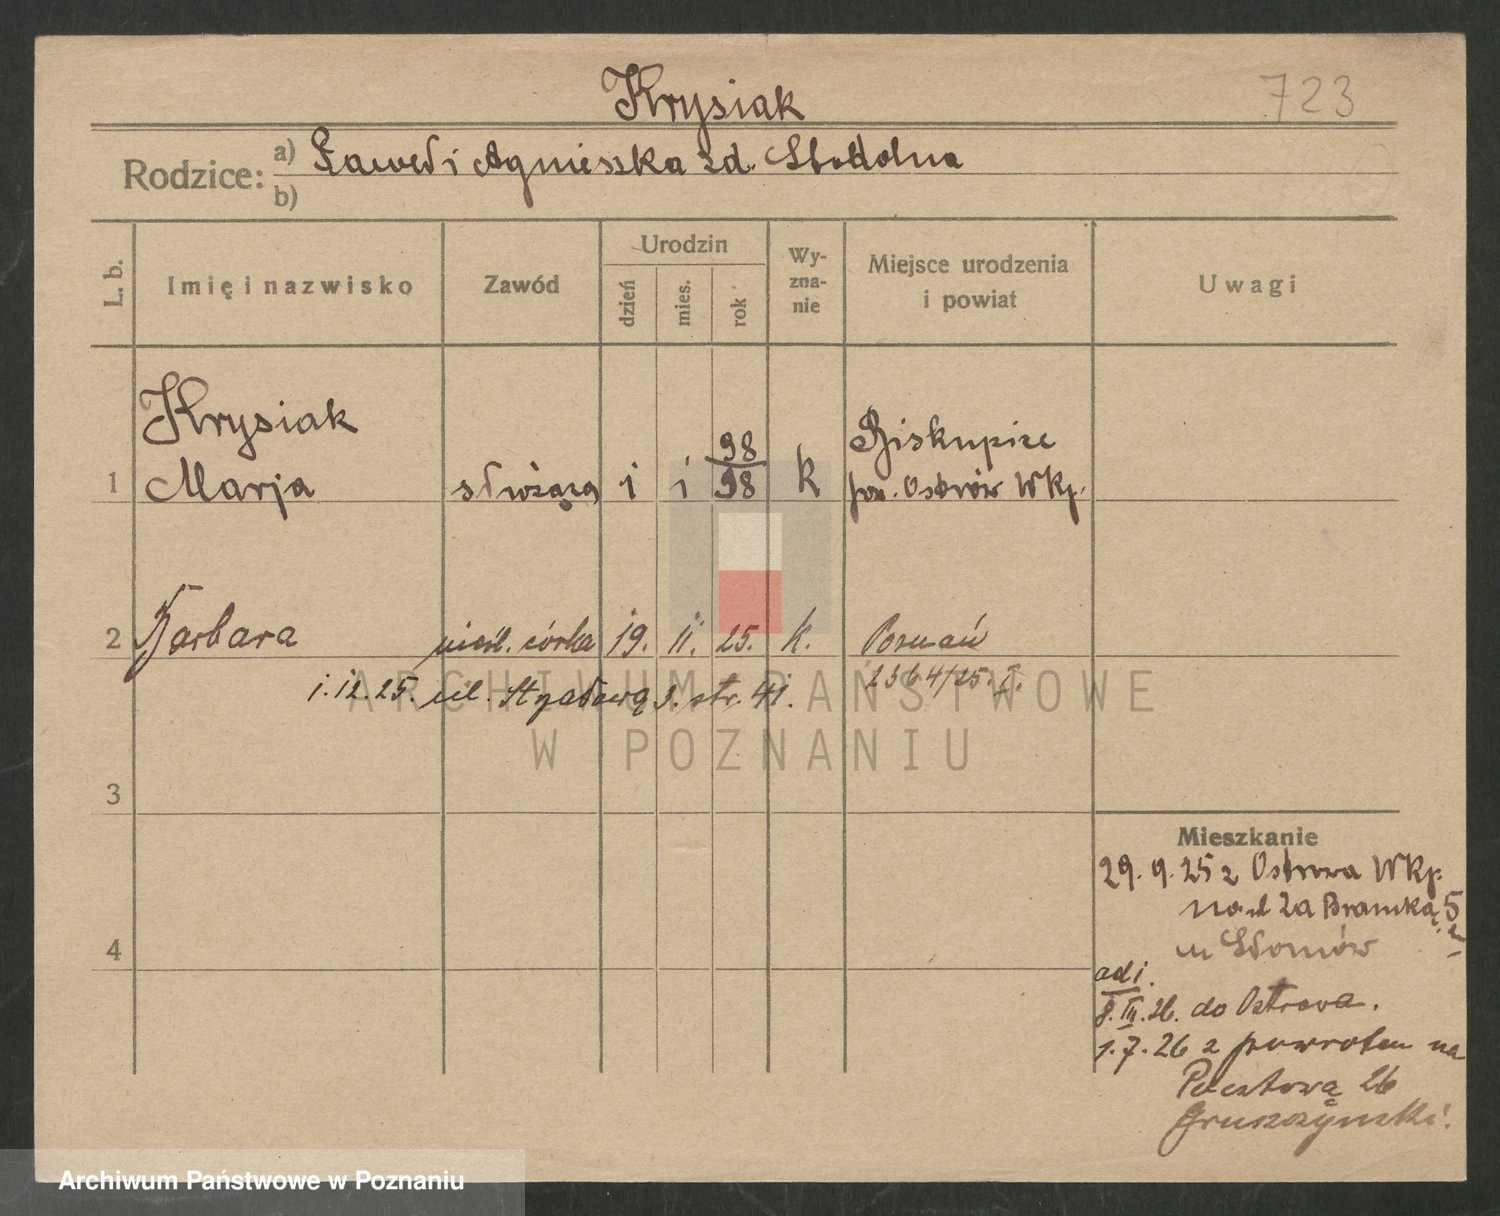 Krysiak
723
Rodzice: a) Paweł i Agnieszka zd. Stodolna
b)
L. b.
Imię i nazwisko
Zawód
Urodzin
dzień
mies.
rok
Wy-
zna-
nie
Miejsce urodzenia
i powiat
Uwagi
Krysiak
1 Marja służąca 1 1 98
98 k Biskupice
pow. Ostrów Wkp.
2 Barbara nieśl. córka 19. 11. 25. k. Poznań
2364/25. I.
1.12.25. ul. Stząłową str. 41.
ARCHIWUM PAŃSTWOWE
W POZNANIU
3
4
Mieszkanie
29. 9. 25 z Ostrowa Wkp.
na ul Za Bramką 5
u Słomów
adi.
8. III. 26. do Ostrowa.
1. 7. 26 z powrotem na
Pocztową 26
Gruszczyński.
Archiwum Państwowe w Poznaniu